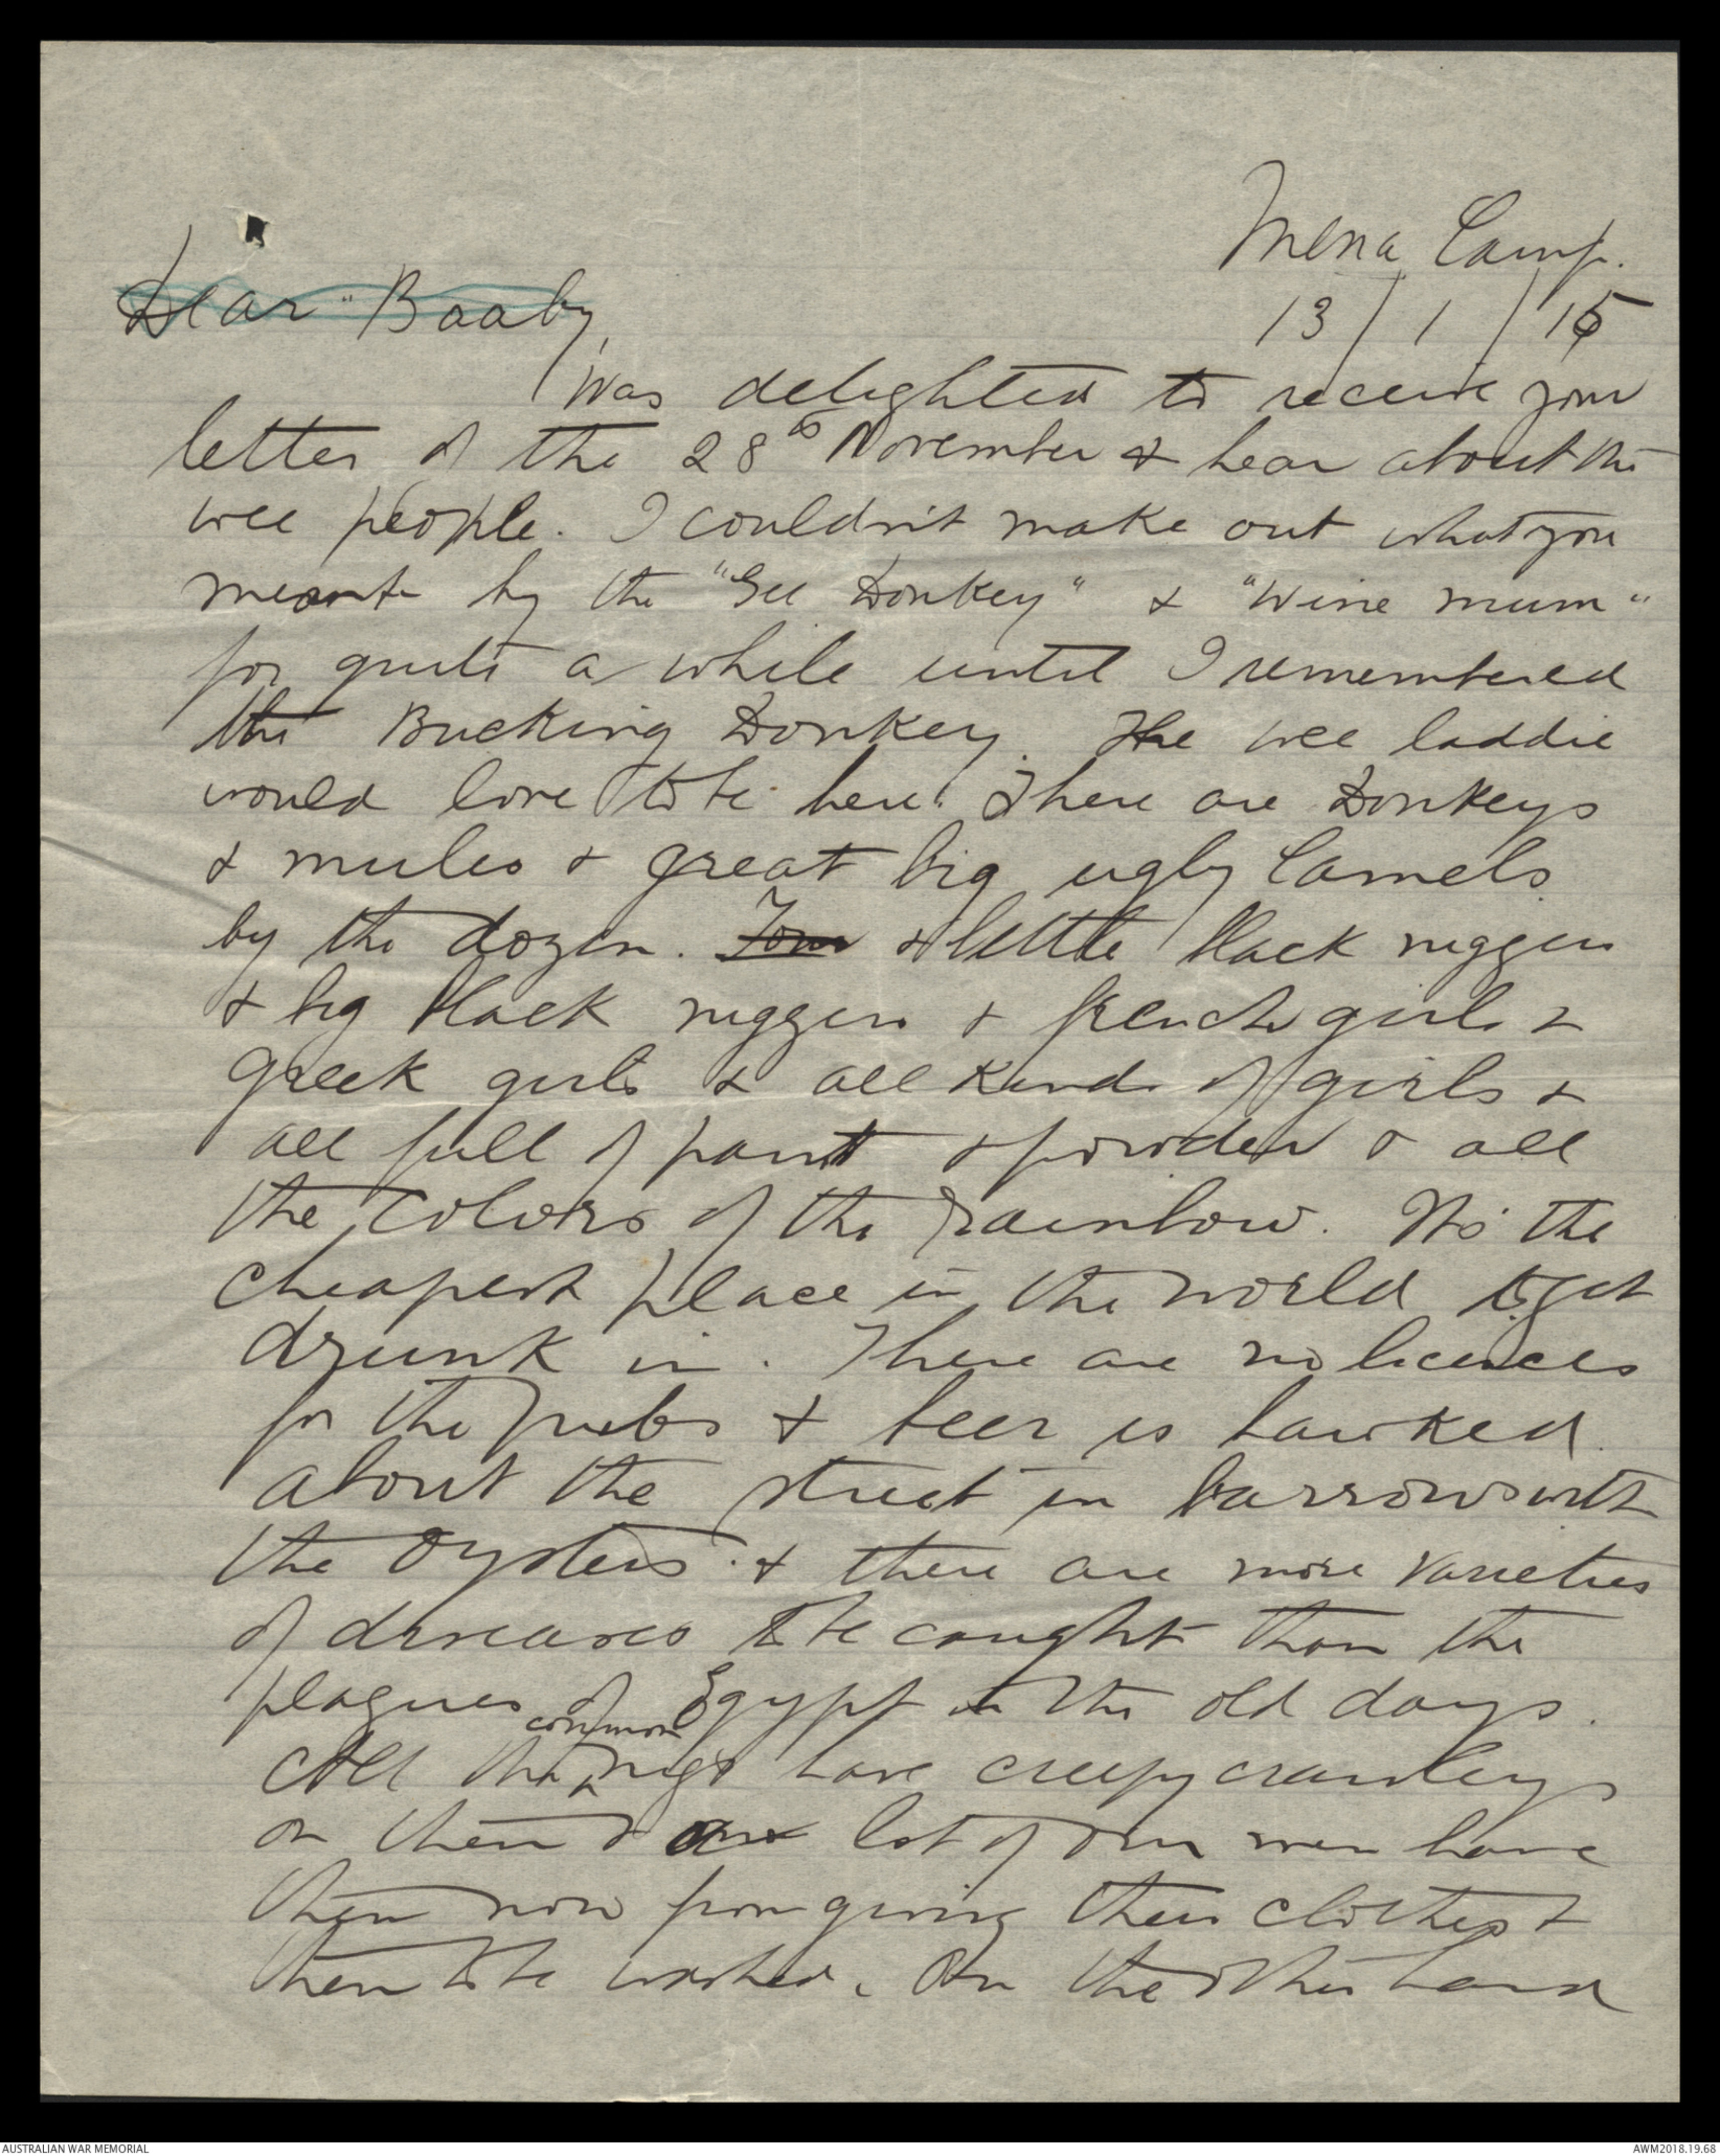 Mena Camp.
13/1/15
Dear "Baaby,
Was delighted to receive your
letter of the 28th November & hear about the
wee people. I couldn't make out what you
meant by the "Gee Donkey" & "Wine mum"
for quite a while until I remembered
the Bucking Donkey. The wee laddie
would love to be here. There are Donkeys
& mules & great big ugly Camels
by the dozen. & little black niggers
& big black niggers & french girls &
Greek girls & all kinds of girls &
all full of paint & powder & all
the colors of the rainbow. It's the
cheapest place in the world to get
drunk in. There are no licences
for the pubs & beer is hawked
about the street in barrows with
the oysters & there are more varieties
of diseases to be caught than the
plagues of Egypt in the old days.
All the common nigs have creepy crawleys
on them & a lot of our men have
them now from giving their clothes to
them to be washed. On the other hand
AUSTRALIAN WAR MEMORIAL
AWM2018.19.68